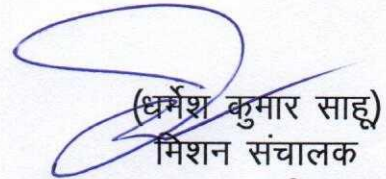 (धर्मेश कुमार साहू)
मिशन संचालक